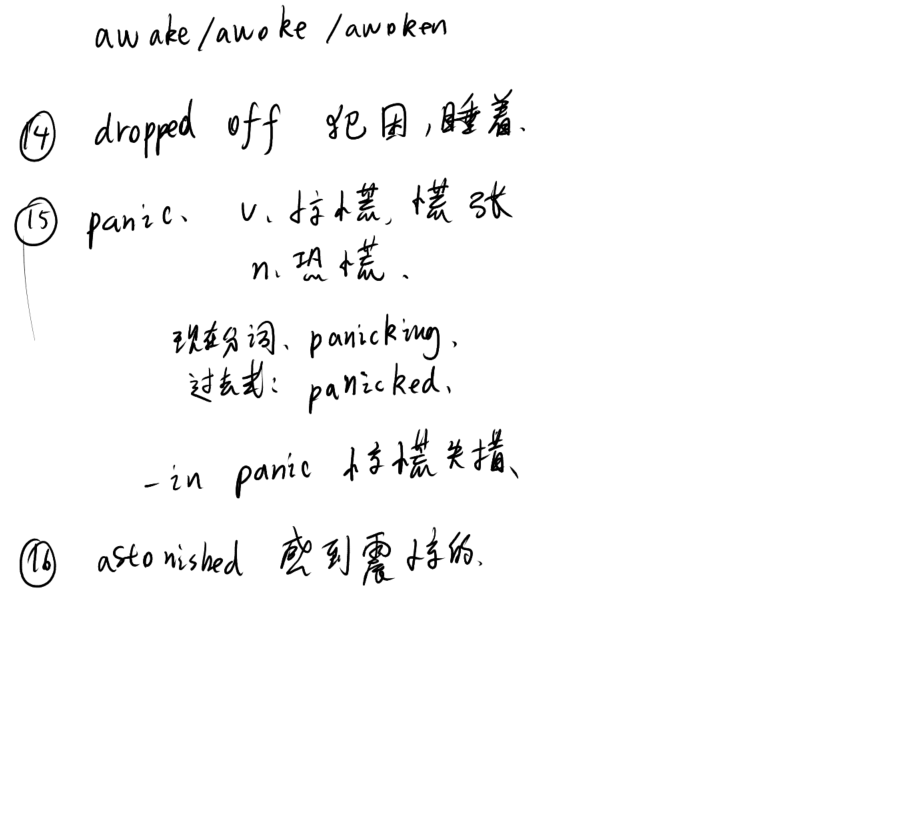 awake/awoke/awoken
⑭ dropped off 犯困,睡着.
⑮ panic、 v、惊慌,慌张
n、恐慌.
现在分词、panicking,
过去式: panicked、
-in panic 惊慌失措、
⑯ astonished 感到震惊的.